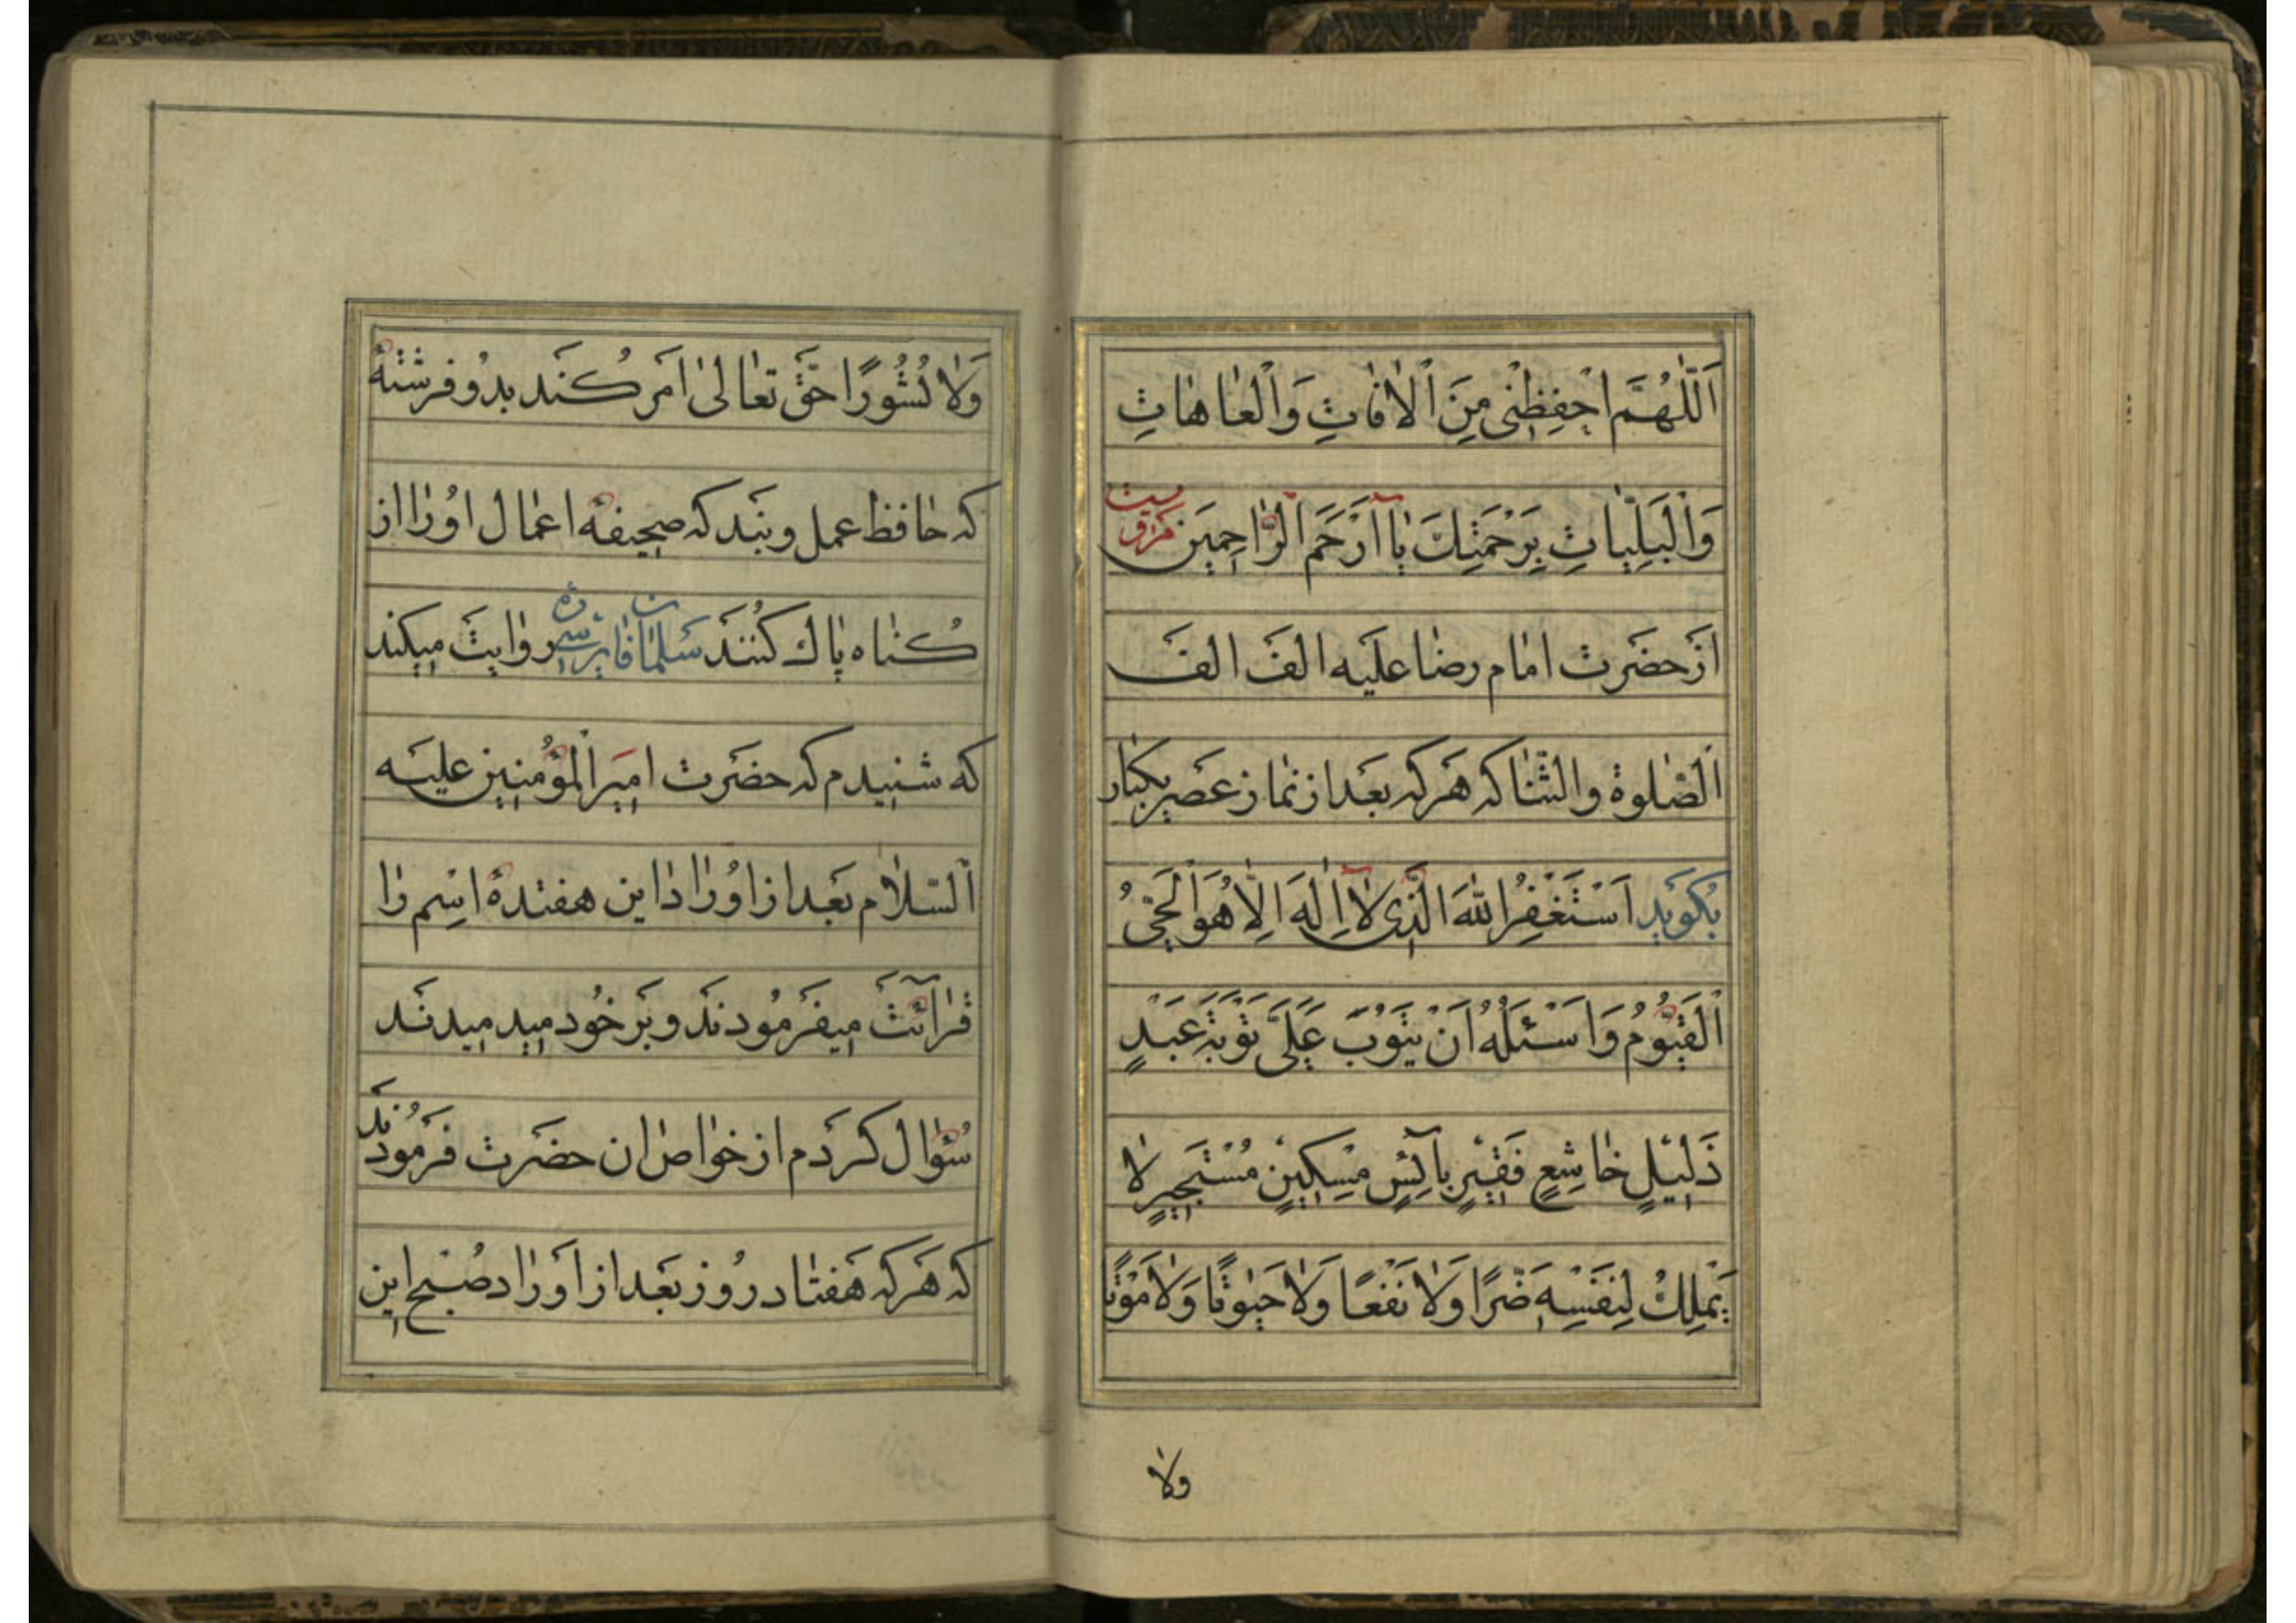 اَللّٰهُمَّ احْفِظْنٖی مِنَ الْاٰفٰاتِ وَالْعٰاهٰاتِ
وَالْبَلِیّٰاتِ بِرَحْمَتِكَ یٰا اَرْحَمَ الرّٰاحِمٖینَ مرویست
اَز حضَرت امٰام رضٰا علَیه الفَ الفَ
اَلصّٰلوة والثّنٰا که هَر که بعَد از نمٰاز عَصر یکبٰار
بُکوَید اَسْتَغْفِرُ اللّٰهَ الَّذٖی لٰا اِلٰهَ اِلّٰا هُوَ الْحَیُّ
الْقَیّوُمُ وَاَسْئَلُهُ اَنْ یَتوُبَ عَلَیَّ تَوْبَةَ عَبْدٍ
ذَلٖیلٍ خٰاشِعٍ فَقٖیرٍ بآئِسٍ مِسْکٖینٍ مُسْتَجٖیرٍ لٰا
یَمْلِكُ لِنَفْسِهٖ ضَرًّا وَلٰا نَفْعًا وَلٰا حَیٰوتًا وَلٰا مَوْتًا
ولٰا
وَلٰا نُشُورًا حَقّ تعٰالیٰ امَر کُنَد بدُو فرشتهٔ
که حٰافظ عمل ویند که صحیفهٔ اعمٰال اوُرٰا از
کُنٰاه پٰاك کُنند سَلمٰان فٰارسی ره روٰایت میکند
که شنیدم که حضَرت امیَر المؤمنین علیَه
السّلاٰم بعَد از اوُرٰاد این هفتدهٔ اسْم رٰا
قرٰائتَ میفَرمُودندَ و بَر خُود میدمیدندَ
سُؤٰال کرَدم از خوٰاص ان حضَرت فَرمُودندَ
که هَر که هَفتٰاد رُوز بعَد از اَورٰاد صُبح این